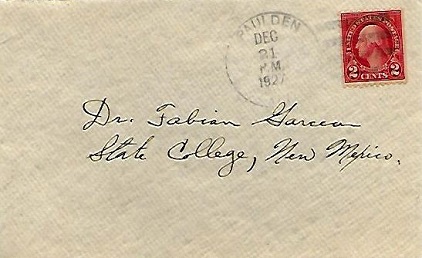 PAULDEN
DEC
31
P.M.
1927
UNITED STATES POSTAGE
2 CENTS 2
Dr. Fabian Garcia
State College, New Mexico.